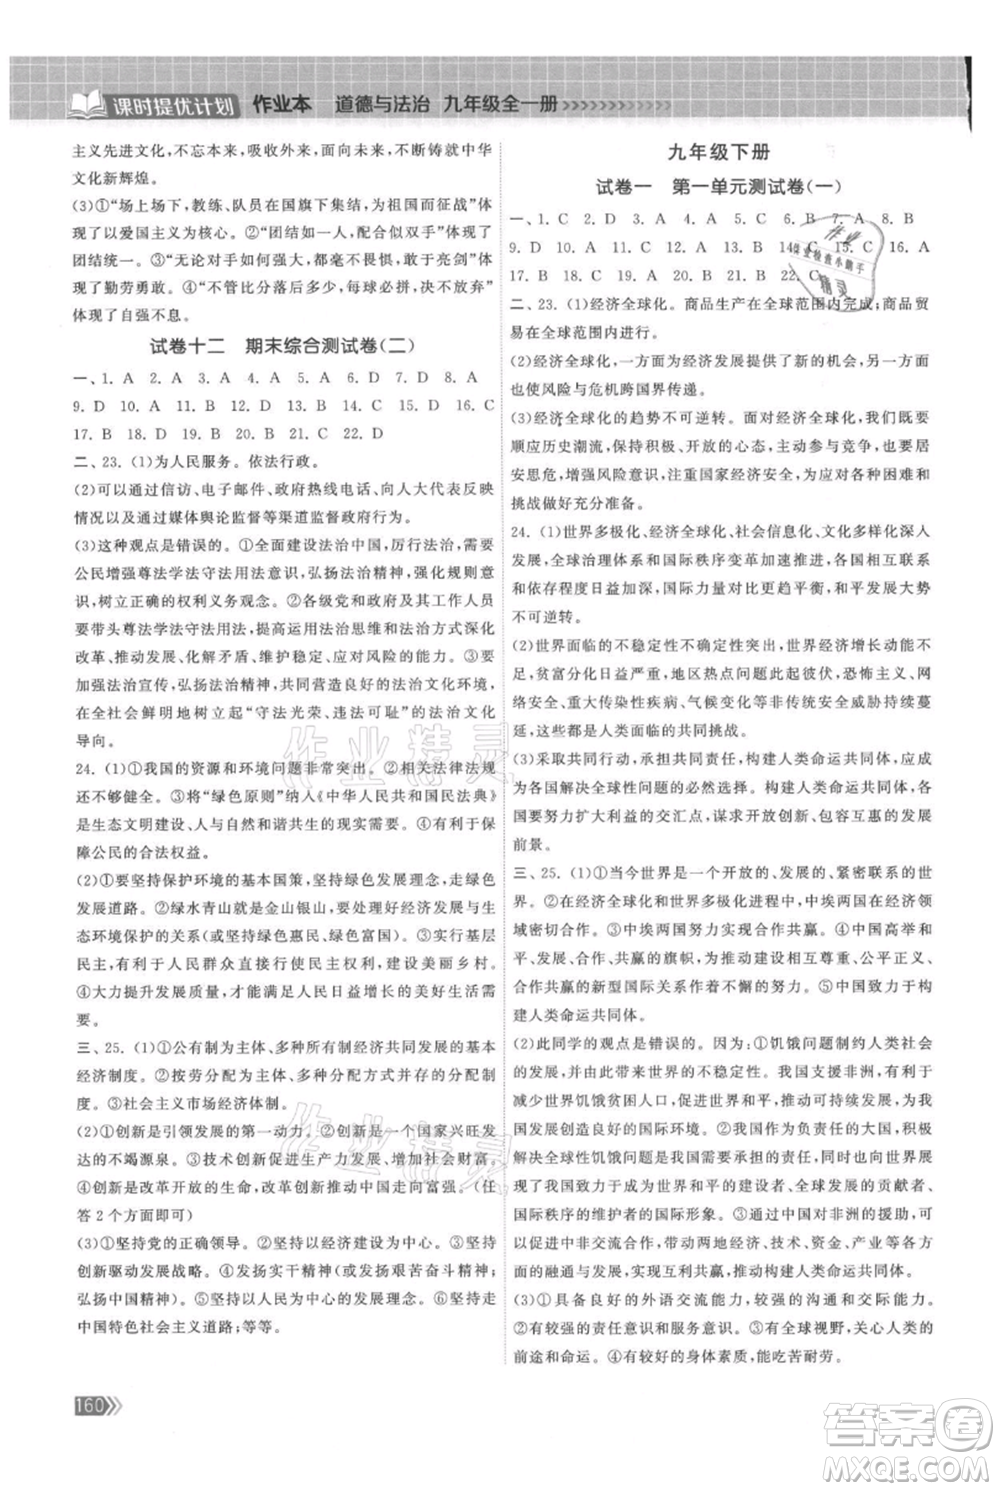 课时提优计划 作业本 道德与法治 九年级全一册
主义先进文化,不忘本来、吸收外来、面向未来,不断铸就中华
文化新辉煌。
(3)①“上场下场,教练、队员在国旗下集结,为祖国征战”体
现了以爱国主义为核心。②“团结如一,配合似双手”体现了
团结统一。③“无论对手如何强大,都毫不畏惧,敢于亮剑”体
现了勤劳勇敢。④“不管比分落后多少,每球必拼,战至终章”
体现了自强不息。
试卷十二 期末综合测试卷(二)
一、1. A 2. A 3. A 4. A 5. A 6. B 7. D 8. A
9. D 10. A 11. A 12. B 13. D 14. A 15. C 16. C
17. B 18. C 19. D 20. B 21. D 22. D
二、23. (1)为人民服务。依法行政。
(2)可以通过信访、电子邮件、政府热线电话、向人大代表反映
情况以及通过媒体舆论监督等渠道监督政府行为。
(3)这种观点是错误的。①全面建设法治中国,厉行法治,需要
公民增强尊法学法守法用法意识,弘扬法治精神,强化规则意
识,树立正确的权利义务观念。②各级党和政府及其工作人员
要带头尊法学法守法用法,善于运用法治思维和法治方式深化
改革、推动发展、化解矛盾、维护稳定、应对风险的能力。③要
加强法治宣传,弘扬法治精神,共同营造良好的法治环境,
在全社会鲜明地树立起“守法光荣、违法可耻”的法治文化
导向。
24. (1)①我国的资源和环境问题非常突出。②相关法律法规
还不够健全。③将“绿色原则”纳入《中华人民共和国民法典》
是生态文明建设、人与自然和谐共生的表现。④有利于更好保
障公民的合法权益。
(2)①要坚持保护环境的基本国策,坚持绿色发展理念,走绿色
发展道路。②绿水青山就是金山银山,要处理好经济发展与生
态环境保护的关系(或坚持绿色惠民、绿色富国)。③实行基层
民主,有利于提高人民群众参与的积极性,建设美丽乡村。
④大力提升发展质量,才能满足人民日益增长的美好生活需
要。
三、25. (1)①公有制为主体、多种所有制经济共同发展的基本
经济制度。②按劳分配为主体、多种分配方式并存的分配
制度。③社会主义市场经济体制。
(2)①创新是引领发展的第一动力。②创新是一个国家兴旺发
达的不竭源泉。③技术创新促进生产力发展、增加社会财富。
④创新是改革开放的生命,改革创新推动中国走向富强。(任
答2个方面即可)
(3)①坚持党的正确领导。②以经济建设为中心。③坚持
创新驱动发展战略。④发扬实干精神(或发扬艰苦奋斗精神,
弘扬中国精神)。⑤坚持以人民为中心的发展思想。⑥坚持走
中国特色社会主义道路;等等。
160
九年级下册
试卷一 第一单元测试卷(一)
一、1. C 2. D 3. A 4. D 5. C 6. B 7. A 8. B
9. D 10. B 11. C 12. B 13. C 14. C 15. C 16. A
17. B 18. C 19. D 20. D 21. B 22. C
二、23. (1)经济全球化。商品生产在全球范围内完成;商品贸
易在全球范围内进行。
(2)经济全球化,一方面为经济发展提供了新的机会,另一方面
也使风险与危机跨国界传递。
(3)经济全球化的趋势不可逆转。面对经济全球化,我们要
顺应历史潮流,保持积极、开放的心态,主动参与竞争,也要居
安思危,增强风险意识,注重国家经济安全,为应对各种困难和
挑战做好充分准备。
24. (1)世界多极化、经济全球化、社会信息化、文化多样化深入
发展,全球治理体系和国际秩序变革加速推进,各国相互联系
和依存程度日益加深,国际力量对比更趋平衡,和平发展大势
不可逆转。
(2)世界面临的不稳定性不确定性突出,世界经济增长动能
不足,贫富分化日益严重,地区热点问题此起彼伏,恐怖主义、网
络安全、重大传染性疾病、气候变化等非传统安全威胁持续蔓
延,这些都是人类面临的共同挑战。
(3)采取共同行动,承担共同责任,构建人类命运共同体,是
各国解决全球性问题的必然选择。构建人类命运共同体,各
国要努力扩大利益的交汇点,谋求开放创新、包容互惠的发展
前景。
三、25. (1)①当今世界是一个开放的、发展的、紧密联系的世
界。②在经济全球化和世界多极化深入发展,中埃两国在经济领
域密切合作。③中埃两国努力实现合作共赢。④中国高举和
平、发展、合作、共赢的旗帜,为推动建设相互尊重、公平正义、
合作共赢的新型国际关系作着不懈的努力。⑤中国致力于构
建人类命运共同体。
(2)此同学的观点是错误的。①饥饿问题制约人类社会
的发展,影响世界的和平与稳定。我国支援非洲国家,有利于
减少世界饥饿贫困人口,促进世界和平,推动可持续发展,为我
国发展创造良好的国际环境。②我国帮助其他国家应对饥饿
问题,展现了我国作为世界和平的建设者、全球发展的贡献者、
国际秩序的维护者的国际形象。③中国对非洲的援助,有利于
促进中非交流合作,带动两地经济、技术、资金、产业等方面
的融通与发展,实现互利共赢,构建人类命运共同体。
(3)①具备良好的外语交流能力,较强的沟通和交际能力。
②有较强的责任意识和服务意识。③有全球视野,关心人类的
前途和命运。④有较好的身体素质,能吃苦耐劳。
作业精灵
作业精灵
答案圈
MXQE.COM